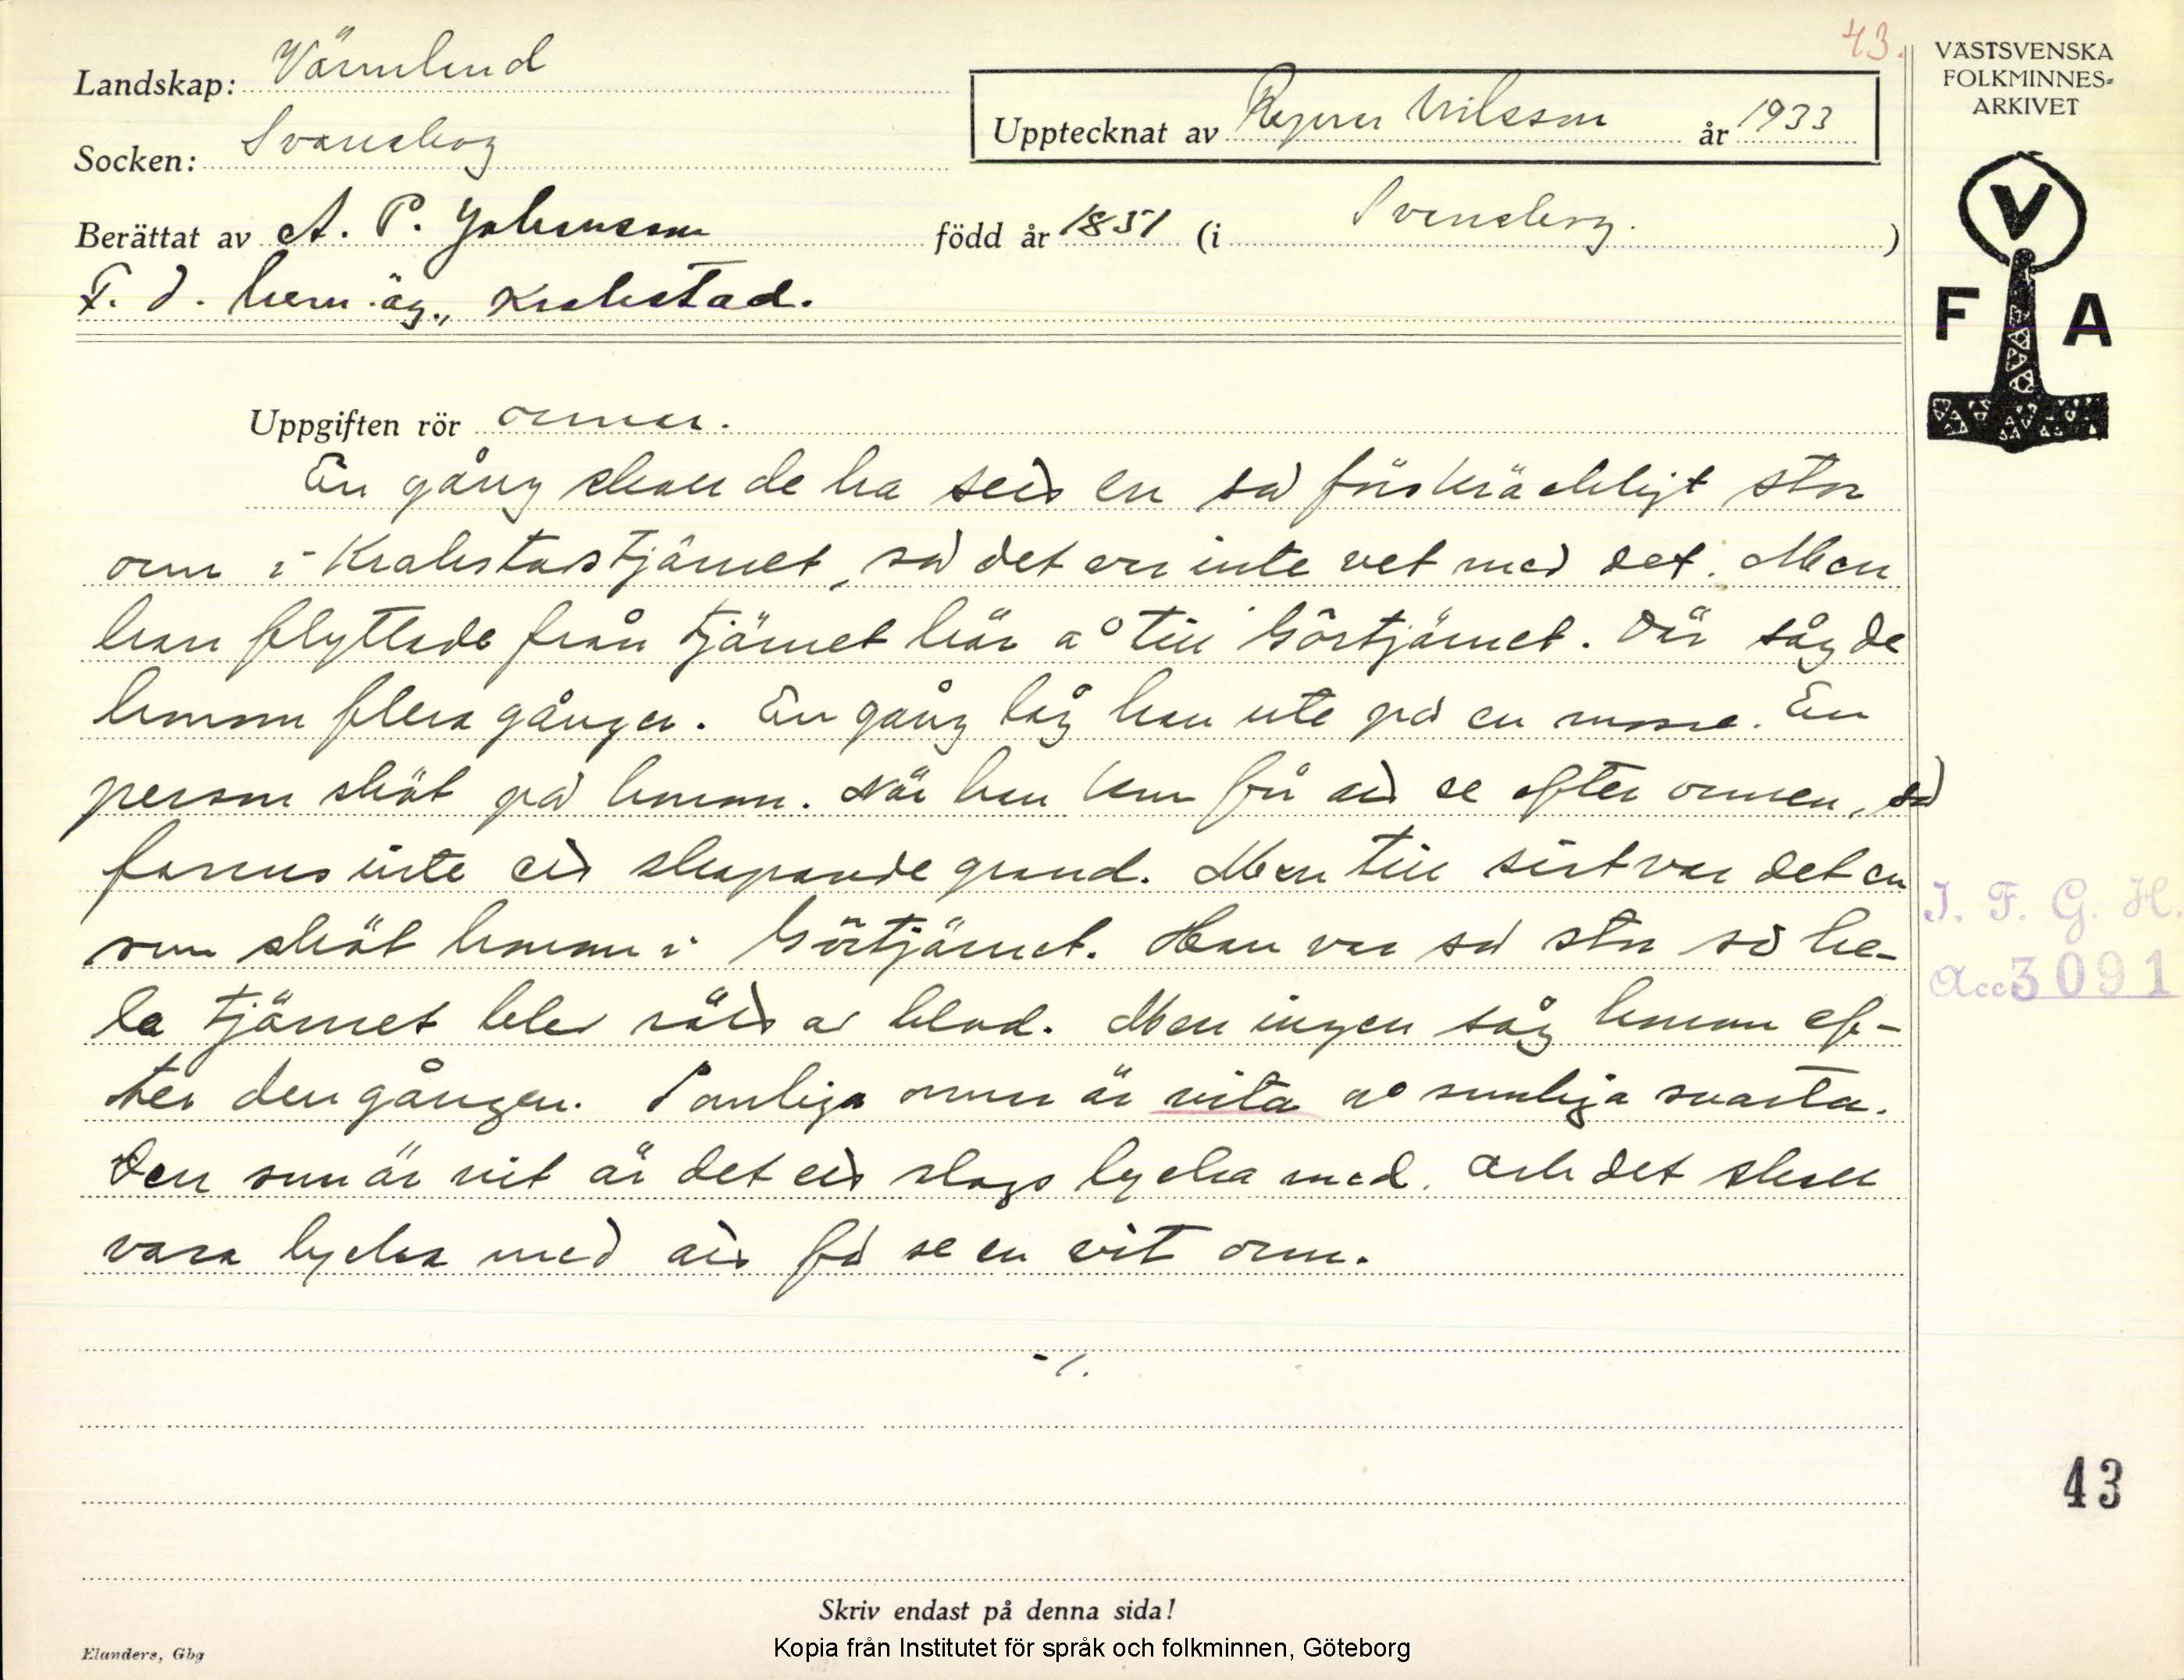 43.
Landskap: Värmland
Socken: Svanskog
Upptecknat av Ragnar Nilsson år 1933
Berättat av A. P. Johansson född år 1851 (i Svanskog.)
F. d. hem.äg., Krokstad.
VÄSTSVENSKA
FOLKMINNES-
ARKIVET
V
F A
Uppgiften rör ormar.
En gång skall de ha sett en så förskräckligt stor
orm i Krokstadstjärnet, så det var inte vet med det. Men
han flyttade från tjärnet här å till Görtjärnet. Där såg de
honom flera gånger. En gång låg han ute på en mosse. En
person sköt på honom. När han kom för att se efter ormen, så
fanns inte ett skapande grand. Men till sist var det en
som sköt honom i Görtjärnet. Han var så stor så he-
la tjärnet blev rött av blod. Men ingen såg honom ef-
ter den gången. Somliga ormar är vita å somliga svarta.
Den som är vit är det ett slags lycka med. Och det skall
vara lycka med att få se en vit orm.
-/.
I. F. G. H.
Acc 3091
43
Skriv endast på denna sida!
Elanders, Gbg
Kopia från Institutet för språk och folkminnen, Göteborg